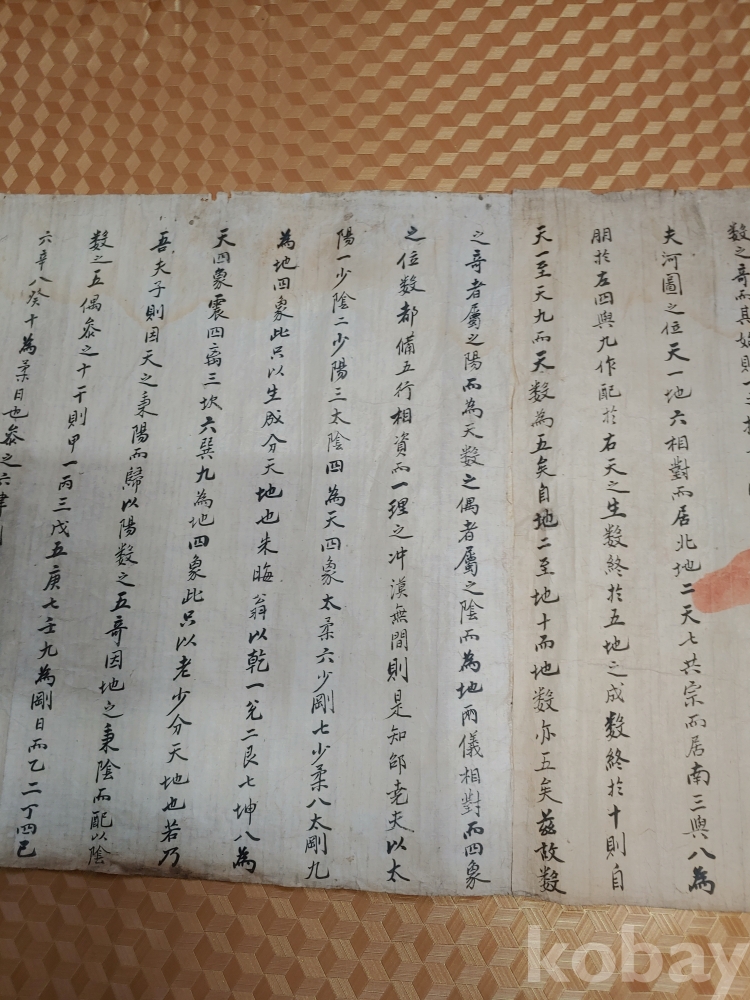 数之奇而其始則
夫河圖之位天一地六相對而居北地二天七共宗而居南三與八為
朋於左四與九作配於右天之生数終於五地之成数終於十則自
天一至天九而天数為五矣自地二至地十而地数亦五矣玆故数
之奇者屬之陽而為天数之偶者屬之陰而為地兩儀相對而四象
之位数都備五行相資而一理之冲漠無間則是知邵堯夫以太
陽一少陰二少陽三太陰四為天四象太柔六少剛七少柔八太剛九
為地四象此只以生成分天地也朱晦翁以乾一兌二艮七坤八為
天四象震四离三坎六巽九為地四象此只以老少分天地也若乃
吾夫子則因天之秉陽而歸以陽数之五奇因地之秉陰而配以陰
数之五偶叅之十干則甲一丙三戊五庚七壬九為剛日而乙二丁四己
六辛八癸十為柔日也叅之六律
kobay